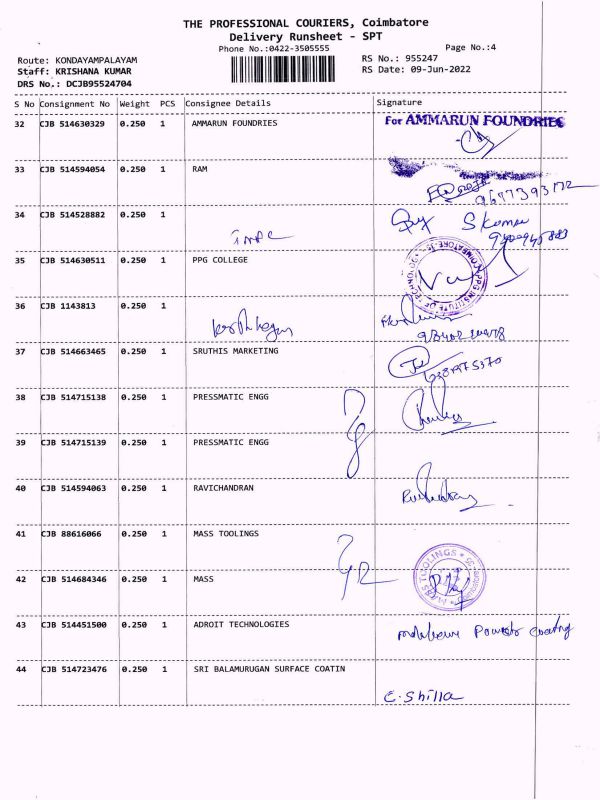 THE PROFESSIONAL COURIERS, Coimbatore
Delivery Runsheet - SPT
Phone No.:0422-3505555
Page No.:4
Route: KONDAYAMPALAYAM
RS No.: 955247
Staff: KRISHANA KUMAR
RS Date: 09-Jun-2022
DRS No.: DCJB95524704
S No Consignment No Weight PCS Consignee Details Signature
32 CJB 514630329 0.250 1 AMMARUN FOUNDRIES For AMMARUN FOUNDRIES
33 CJB 514594054 0.250 1 RAM
34 CJB 514528882 0.250 1
S Kumar
35 CJB 514630511 0.250 1 PPG COLLEGE
PPG INSTITUTE OF TECHNOLOGY COIMBATORE
36 CJB 1143813 0.250 1
37 CJB 514663465 0.250 1 SRUTHIS MARKETING
38 CJB 514715138 0.250 1 PRESSMATIC ENGG
39 CJB 514715139 0.250 1 PRESSMATIC ENGG
40 CJB 514594063 0.250 1 RAVICHANDRAN
41 CJB 88616066 0.250 1 MASS TOOLINGS
MASS TOOLINGS
42 CJB 514684346 0.250 1 MASS
43 CJB 514451500 0.250 1 ADROIT TECHNOLOGIES
coating
44 CJB 514723476 0.250 1 SRI BALAMURUGAN SURFACE COATIN
E. Shilla